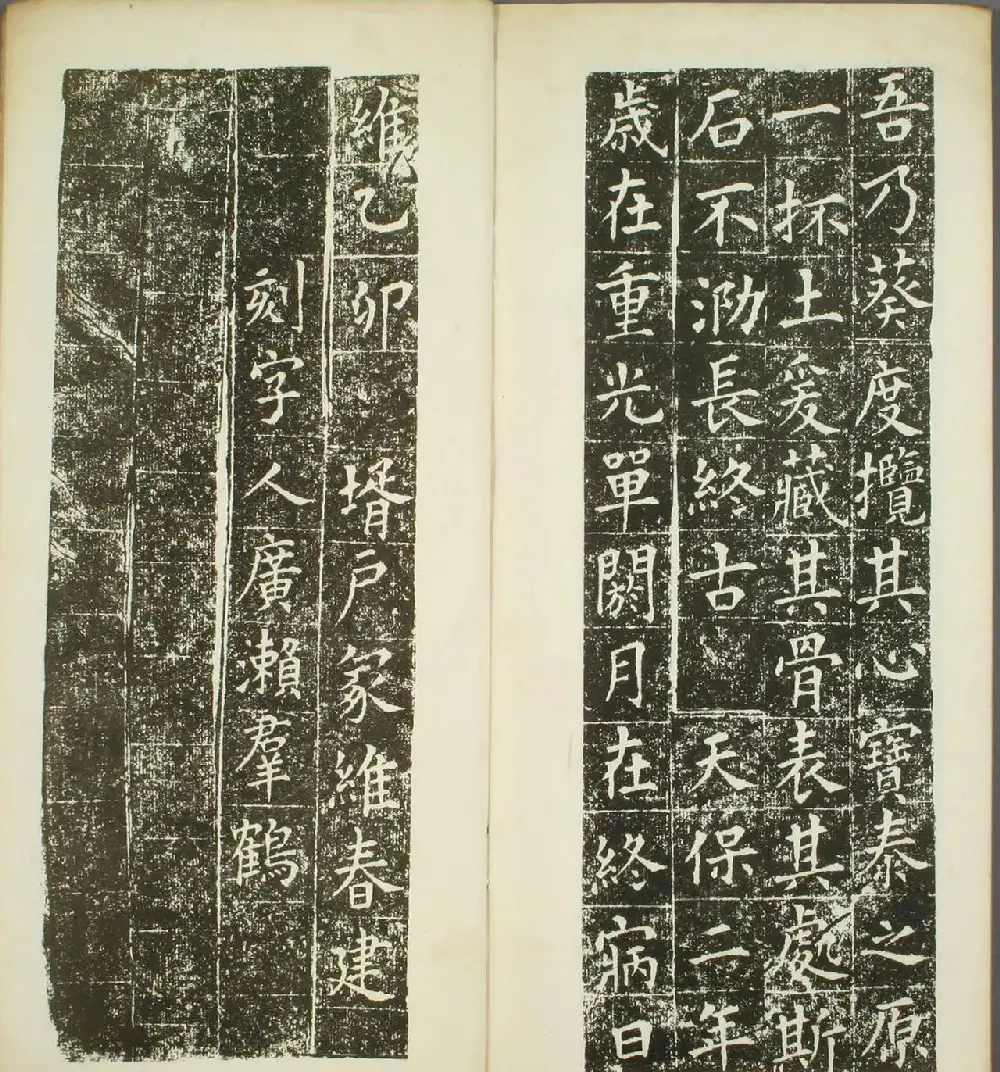 吾乃葵度攬其心寶泰之原
一抔土爰藏其骨表其處斯
石不泐長終古 天保二年
歲在重光單閼月在終病日
維乙卯 壻戶冢維春建
刻字人廣瀨羣鶴